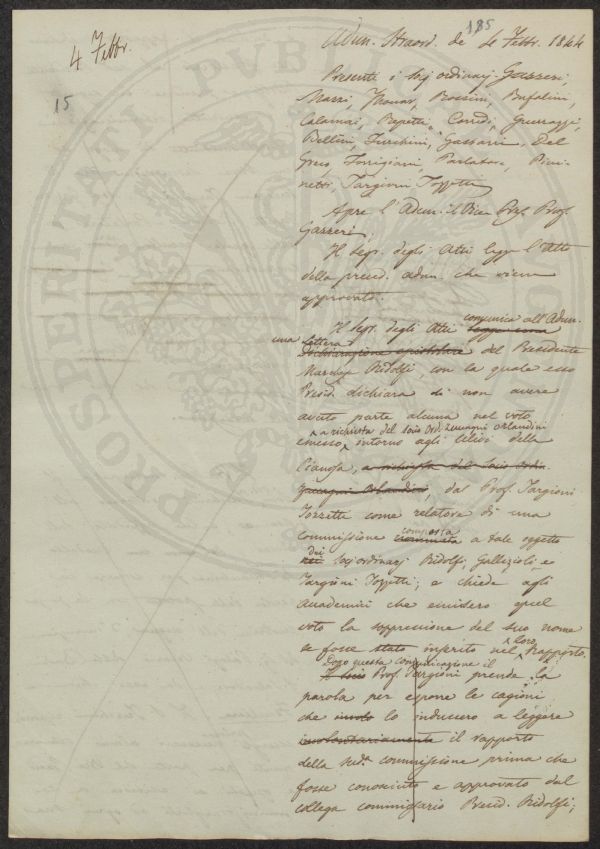 185
4 Febbr.
15
Adun. Straord. de 4 Febbr. 1844
Presenti i Socj ordinarj Gazzeri,
Mazzi, Thouar, Bufalini,
Calamai, Repetti, Corridi, Guerrazzi,
Bellini, Del
Greco, Torrigiani, Parlatore,
Targioni Tozzetti
Apre l'Adun. il Vice Pres. Prof.
Gazzeri.
Il Segr. degli Atti legge l'Atto
della preced. adun. che viene
approvato.
Il Segr. degli Atti legge una comunica all'Adun.
una lettera
Dichiarazione epistolare del Presidente
Marchese Ridolfi, con la quale esso
Presid. dichiara di non avere
avuto parte alcuna nel voto
a richiesta del Socio Ord. Orlandini
emesso intorno agli Ulivi della
Pianosa, a richiesta del Socio Ordin.
Orlandini, dal Prof. Targioni
Tozzetti come relatore di una
commissione composta a tale oggetto
dei Socj ordinarj Ridolfi, Gallizioli, e
Targioni Tozzetti; e chiede agli
Accademici che emisero quel
voto la soppressione del suo nome
se fosse stato inserito nel loro Rapporto.
Dopo questa comunicazione il
Il Socio Prof. Targioni prende la
parola per esporre le cagioni
che lo indussero a leggere
involontariamente il rapporto
della sudª commissione prima che
fosse conosciuto e approvato dal
collega commissario Presid. Ridolfi;
PROSPERITATI PUBLICAE